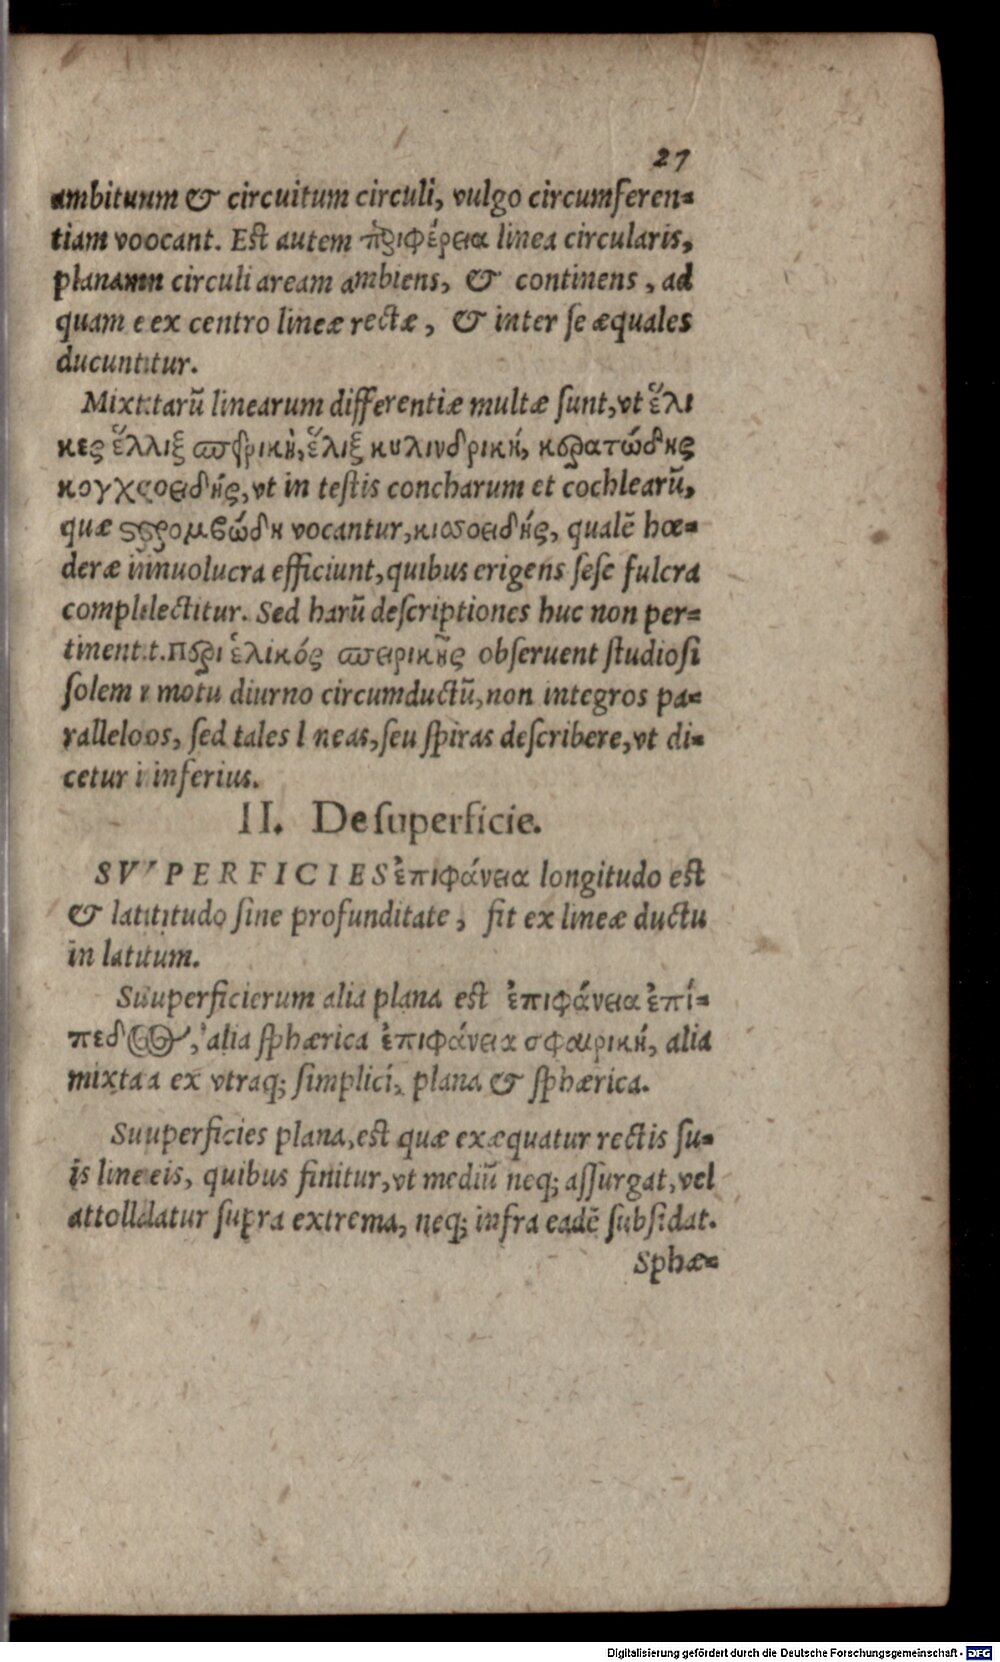 27
ambituum & circuitum circuli, vulgo circumferen=
tiam voocant. Est autem περιφέρεια linea circularis,
planamn circuli aream ambiens, & continens, ad
quam e ex centro lineæ rectæ, & inter se æquales
ducuntitur.
Mixttarũ linearum differentiæ multæ sunt, vt ἕλι
κες ἕλλιξ σπειρική, ἕλιξ κυλινδρική, κερατώδης
κογχοειδής, vt in testis concharum et cochlearũ,
quæ στρομβώδη vocantur, κισσοειδής, qualẽ hœ=
deræ innuolucra efficiunt, quibus erigens sese fulcra
complelectitur. Sed harũ descriptiones huc non per=
tinent.t. περὶ ἑλικός σπειρικῆς obseruent studiosi
solem motu diurno circumductũ, non integros pa=
ralleloos, sed tales l neas, seu spiras describere, vt di=
cetur i inferius.
II. De superficie.
SVPERFICIES ἐπιφάνεια longitudo est
& latititudo sine profunditate, fit ex lineæ ductu
in latuum.
Suuperficierum alia plana est ἐπιφάνεια ἐπί=
πεδος, alia sphærica ἐπιφάνεια σφαιρική, alia
mixtaa ex vtraq; simplici, plana & sphærica.
Suuperficies plana, est quæ exæquatur rectis su=
is lineeis, quibus finitur, vt mediũ neq; assurgat, vel
attolldatur supra extrema, neq; infra eadẽ subsidat.
Sphæ=
Digitalisierung gefördert durch die Deutsche Forschungsgemeinschaft - DFG